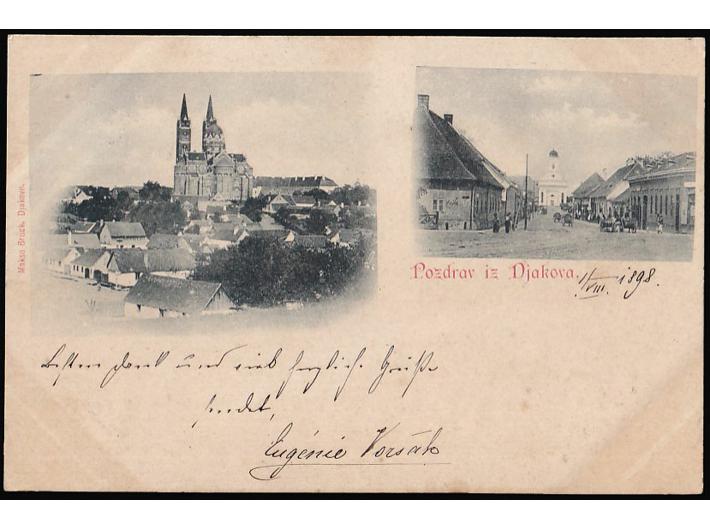 Maksa Bruck, Djakovo.
Pozdrav iz Djakova.
1/VIII. 1898.
Besten Dank und viel herzliche Grüße
sendet,
Eugénie Voršak